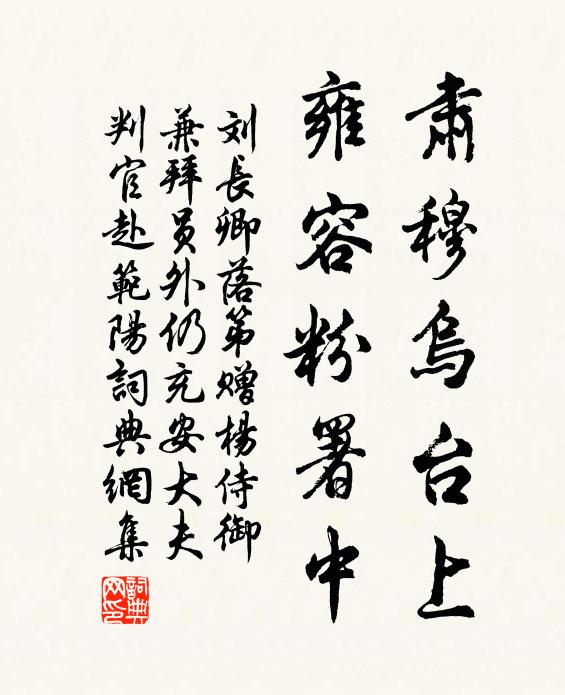 肃穆乌台上
雍容粉署中
刘長卿落第赠楊侍御
兼拜员外仍充安大夫
判官赴範陽詞典網集
詞典网印